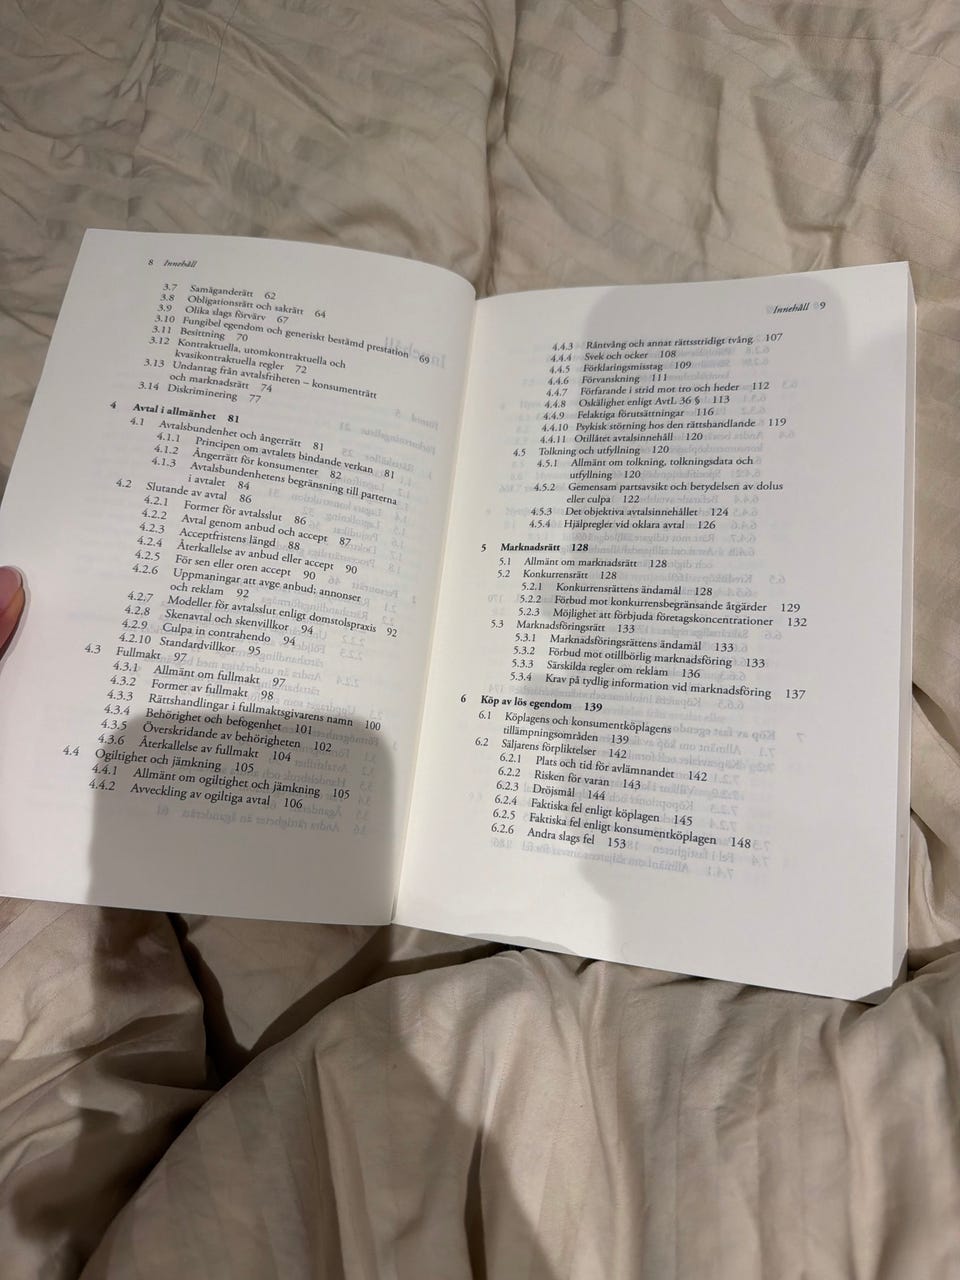 8 Innehåll
3.7 Samäganderätt 62
3.8 Obligationsrätt och sakrätt 64
3.9 Olika slags förvärv 67
3.10 Fungibel egendom och generiskt bestämd prestation 69
3.11 Besittning 70
3.12 Kontraktuella, utomkontraktuella och
kvasikontraktuella regler 72
3.13 Undantag från avtalsfriheten – konsumenträtt
och marknadsrätt 74
3.14 Diskriminering 77
4 Avtal i allmänhet 81
4.1 Avtalsbundenhet och ångerrätt 81
4.1.1 Principen om avtalets bindande verkan 81
4.1.2 Ångerrätt för konsumenter 82
4.1.3 Avtalsbundenhetens begränsning till parterna
i avtalet 84
4.2 Slutande av avtal 86
4.2.1 Former för avtalsslut 86
4.2.2 Avtal genom anbud och accept 87
4.2.3 Acceptfristens längd 88
4.2.4 Återkallelse av anbud eller accept 90
4.2.5 För sen eller oren accept 90
4.2.6 Uppmaningar att avge anbud; annonser
och reklam 92
4.2.7 Modeller för avtalsslut enligt domstolspraxis 92
4.2.8 Skenavtal och skenvillkor 94
4.2.9 Culpa in contrahendo 94
4.2.10 Standardvillkor 95
4.3 Fullmakt 97
4.3.1 Allmänt om fullmakt 97
4.3.2 Former av fullmakt 98
4.3.3 Rättshandlingar i fullmaktsgivarens namn 100
4.3.4 Behörighet och befogenhet 101
4.3.5 Överskridande av behörigheten 102
4.3.6 Återkallelse av fullmakt 104
4.4 Ogiltighet och jämkning 105
4.4.1 Allmänt om ogiltighet och jämkning 105
4.4.2 Avveckling av ogiltiga avtal 106
Innehåll 9
4.4.3 Råntvång och annat rättsstridigt tvång 107
4.4.4 Svek och ocker 108
4.4.5 Förklaringsmisstag 109
4.4.6 Förvanskning 111
4.4.7 Förfarande i strid mot tro och heder 112
4.4.8 Oskälighet enligt AvtL 36 § 113
4.4.9 Felaktiga förutsättningar 116
4.4.10 Psykisk störning hos den rättshandlande 119
4.4.11 Otillåtet avtalsinnehåll 120
4.5 Tolkning och utfyllning 120
4.5.1 Allmänt om tolkning, tolkningsdata och
utfyllning 120
4.5.2 Gemensam partsavsikt och betydelsen av dolus
eller culpa 122
4.5.3 Det objektiva avtalsinnehållet 124
4.5.4 Hjälpregler vid oklara avtal 126
5 Marknadsrätt 128
5.1 Allmänt om marknadsrätt 128
5.2 Konkurrensrätt 128
5.2.1 Konkurrensrättens ändamål 128
5.2.2 Förbud mot konkurrensbegränsande åtgärder 129
5.2.3 Möjlighet att förbjuda företagskoncentrationer 132
5.3 Marknadsföringsrätt 133
5.3.1 Marknadsföringsrättens ändamål 133
5.3.2 Förbud mot otillbörlig marknadsföring 133
5.3.3 Särskilda regler om reklam 136
5.3.4 Krav på tydlig information vid marknadsföring 137
6 Köp av lös egendom 139
6.1 Köplagens och konsumentköplagens
tillämpningsområden 139
6.2 Säljarens förpliktelser 142
6.2.1 Plats och tid för avlämnandet 142
6.2.2 Risken för varan 143
6.2.3 Dröjsmål 144
6.2.4 Faktiska fel enligt köplagen 145
6.2.5 Faktiska fel enligt konsumentköplagen 148
6.2.6 Andra slags fel 153